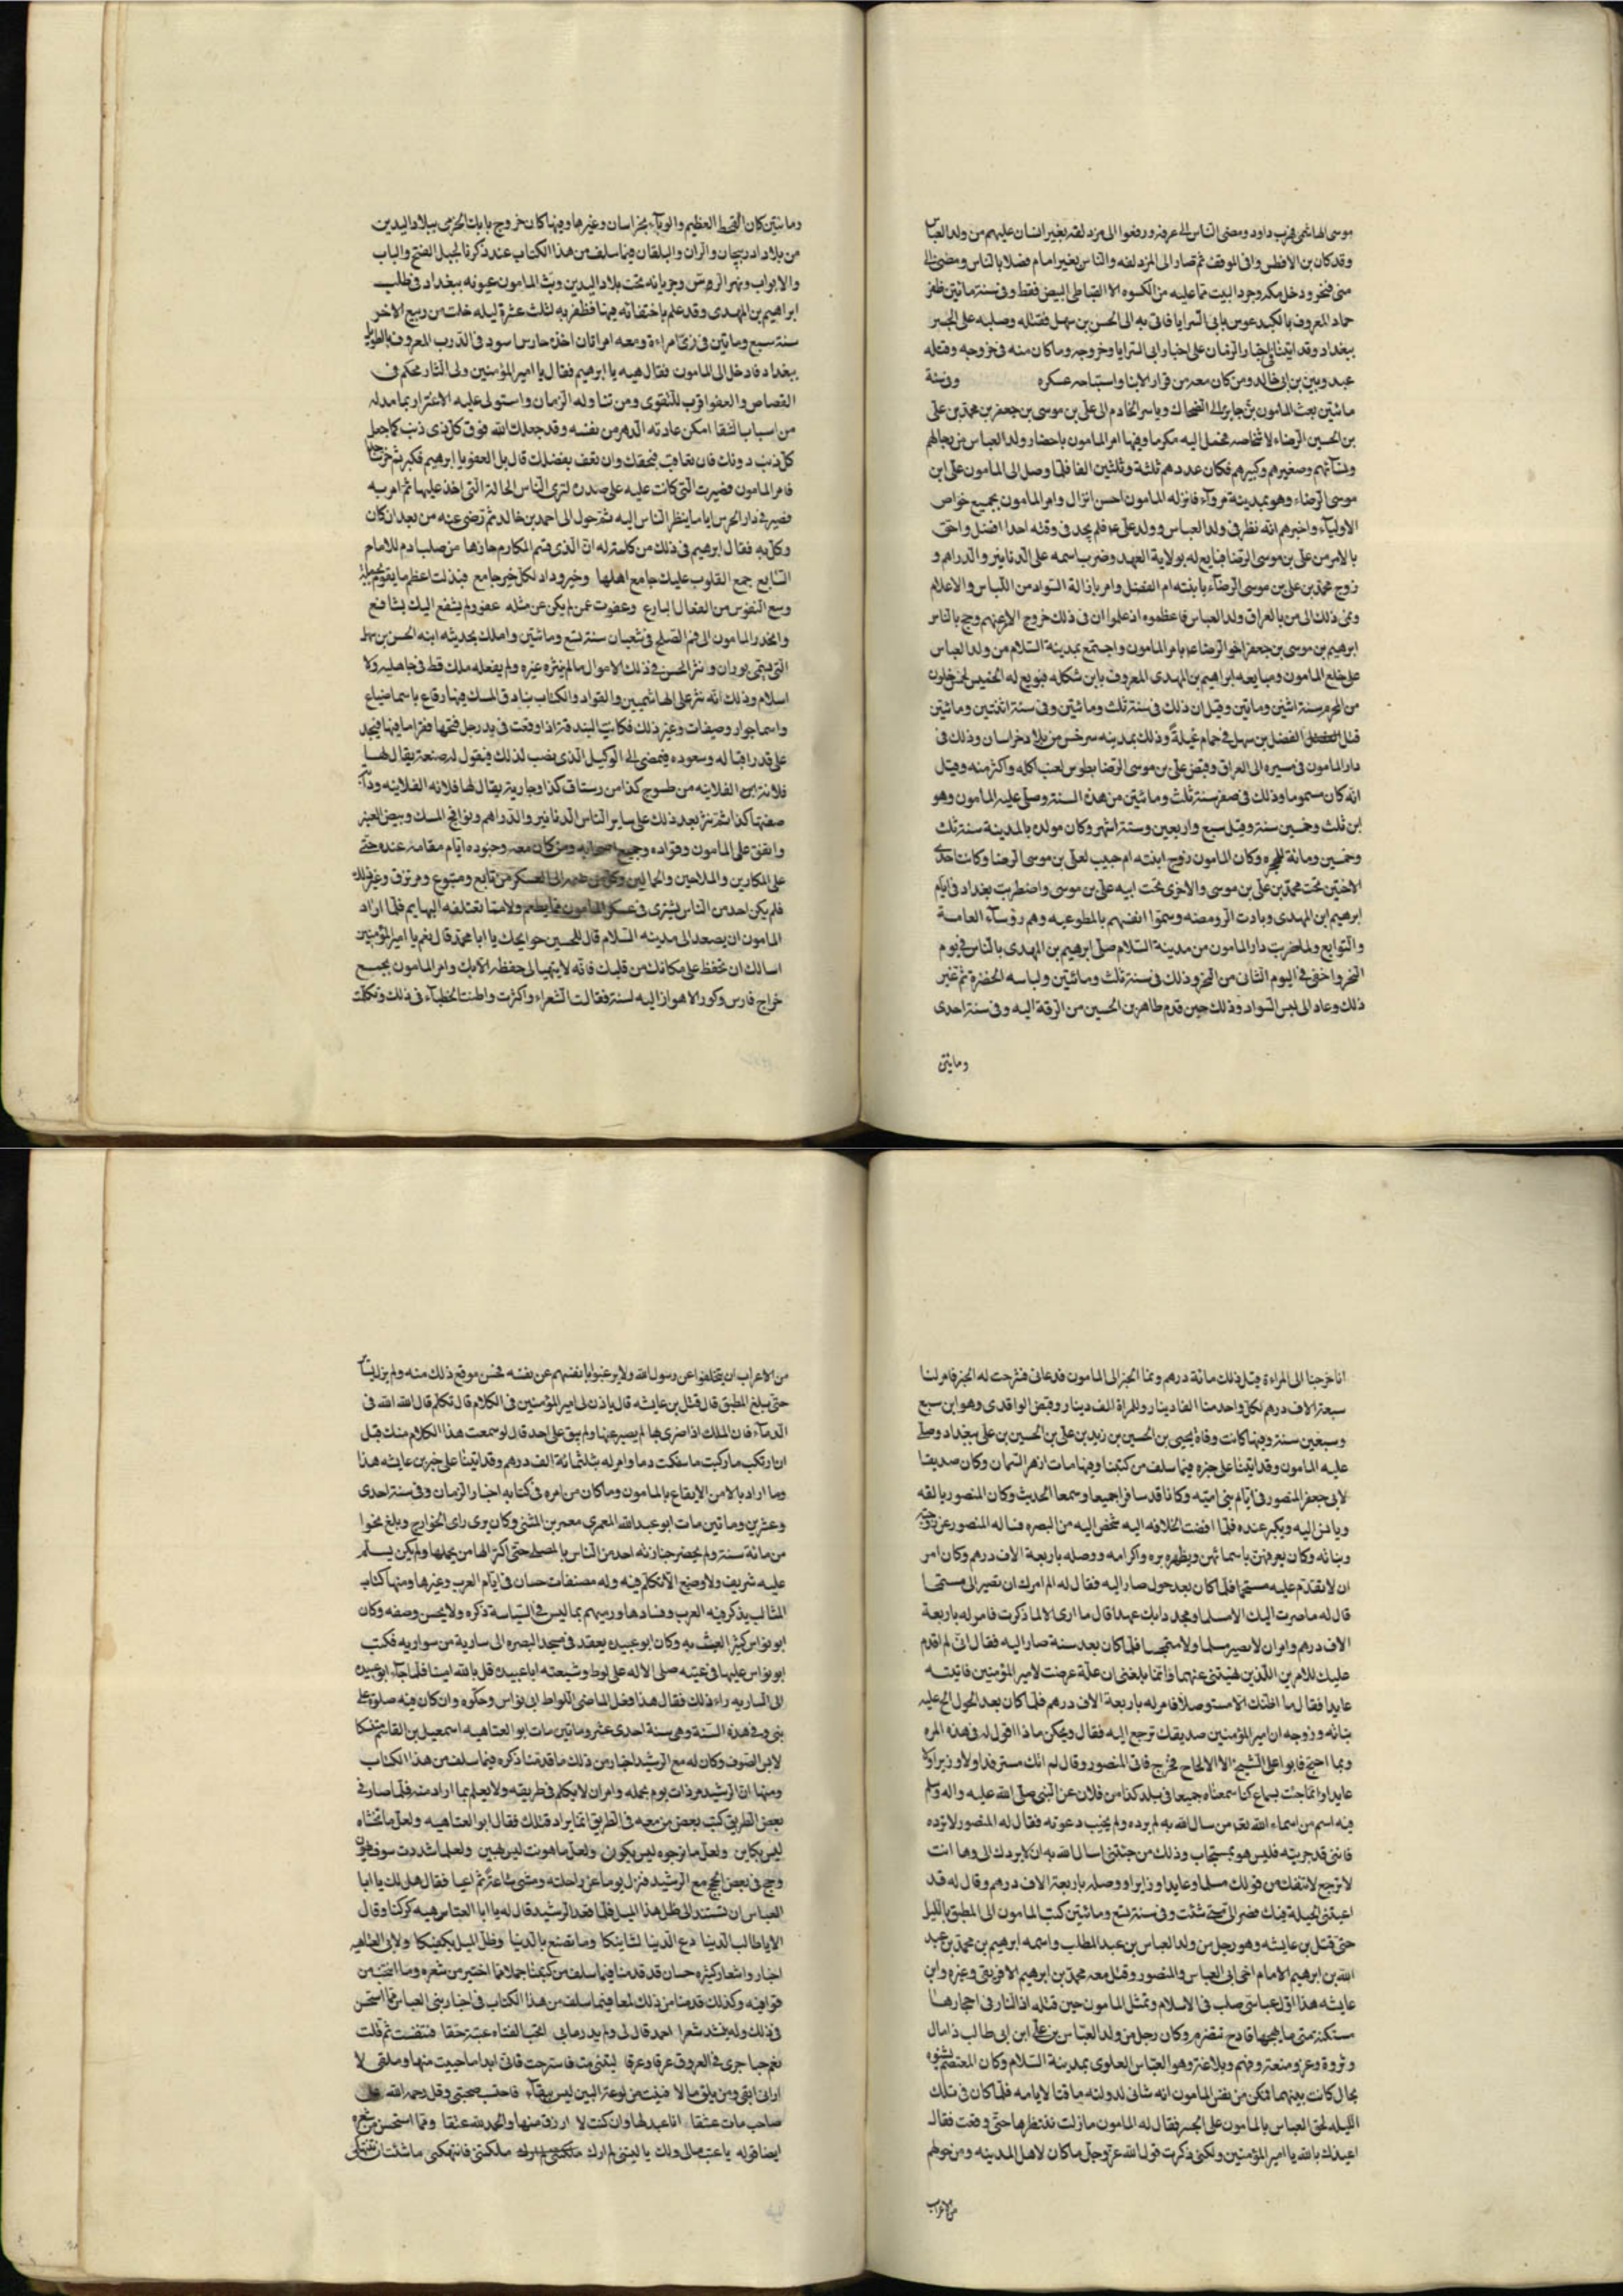 موسى الهاشمى فهرب داود ومضى الناس الى عرفه ورفعوا الى مزدلفه بغير انسان عليهم من ولد العباس
وقد كان بن الافطس وافى الموقف ثم صار الى المزدلفه والناس بغير امام فصلا بالناس ومضى الى
منى فنحر ودخل مكه وجرد البيت مما عليه من الكسوه الا القباطى البيض فقط وفى سنة مائتين ظفر
حماد المعروف بالكند عوس بابى السرايا فاتى به الى الحسن بن سهل فقتله وصلبه على الجسر
ببغداد وقد اتينا فى اخبار الزمان على اخبار ابى السرايا وخروجه وما كان منه فى خروجه وقتله
عبدوس بن ابى خالد ومن كان معه من قرار الابنا واستباحه عسكره وفى سنة
مائتين بعث المامون بن جابر الى الضحاك وياسر الخادم الى على بن موسى بن جعفر بن محمد بن على
بن الحسين الرضاء لاشخاصه فحمل اليه مكرما وفيها امر المامون باحضار ولد العباس من رجالهم
ونسائهم وصغيرهم وكبيرهم فكان عددهم ثلثة وثلثين الفا فلما وصل الى المامون على ابن
موسى الرضاء وهو بمدينة مرو فانزله المامون احسن انزال وامر المامون بجميع خواص
الاولياء واخبرهم انه نظر فى ولد العباس وولد على ع فلم يجد فى وقته احدا افضل واحق
بالامر من على بن موسى الرضا فبايع له بولاية العهد وضرب اسمه على الدنانير والدراهم و
زوج محمد بن على بن موسى الرضاء بابنته ام الفضل وامر بازالة السواد من اللباس والاعلام
ونمى ذلك الى من بالعراق ولد العباس فاعظموه اذ علموا ان فى ذلك خروج الامر عنهم وحج بالناس
ابرهيم بن موسى بن جعفر اخو الرضاء بامر المامون واجتمع بمدينة السلام من ولد العباس
على خلع المامون ومبايعه ابراهيم بن المهدى المعروف بابن شكله فبويع له الخميس لخمس خلون
من المحرم سنة اثنين ومائتين وقيل ان ذلك فى سنة ثلث ومائتين وفى سنة اثنتين ومائتين
قتل الفضل بن سهل فى حمام غيلة وذلك بمدينه سرخس من بلاد خراسان وذلك فى
دار المامون فى مسيره الى العراق وقبض على بن موسى الرضا بطوس لعنب اكله واكثر منه وقيل
انه كان مسموما وذلك فى صفر سنة ثلث ومائتين من هذه السنة وصلى عليه المامون وهو
ابن ثلث وخمسين سنة وقيل سبع واربعين وستة اشهر وكان مولده بالمدينة سنة ثلث
وخمسين ومائة للهجره وكان المامون زوج ابنته ام حبيب لعلى بن موسى الرضا وكانت احدى
الاختين تحت محمد بن على بن موسى والاخرى تحت ابيه على بن موسى واضطربت بغداد فى ايام
ابرهيم ابن المهدى وبادت الرومضه وسموا انفسهم بالمطوعيه وهم رؤساء العامة
والتوابع ولما قربت دار المامون من مدينة السلام صلى ابرهيم بن المهدى بالناس فى يوم
النحر واختفى فى اليوم الثانى من النحر وذلك فى سنة ثلث ومائتين ولباسه الخضرة ثم غير
ذلك وعاد الى لبس السواد وذلك حين قدم طاهر بن الحسين من الرقة اليه وفى سنة احدى
ومايتى
ومائتين كان القحط العظيم والوباء بخراسان وغيرها وفيها كان خروج بابك الخرمى ببلاد البدين
من بلاد ادربيجان والران والبلقان فيما سلف من هذا الكتاب عند ذكرنا لجبل الفتح والباب
والابواب ونهر الرس وجريانه تحت بلاد البدين وبث المامون عيونه ببغداد فى طلب
ابراهيم بن المهدى وقد علم باختفائه فيها فظفر به لثلث عشرة ليله خلت من ربيع الاخر
سنة سبع ومائتين فى زى امراءة ومعه امراتان اخذه حارس اسود فى الدرب المعروف بالطويل
ببغداد فادخل الى المامون فقال هيه يا ابرهيم فقال يا امير المؤمنين ولى الثار محكم فى
القصاص والعفو اقرب للتقوى ومن تناوله الزمان واستولى عليه الاغترار بما مد له
من اسباب الشقا امكن عادته الدهر من نفسه وقد جعلك الله فوق كل ذى ذنب كما جعل
كل ذنب دونك فان تعاقب فبحقك وان تعف بفضلك قال بل العفو يا ابرهيم فكبر ثم خر ساجدا
فامر المامون فصيرت التى كانت عليه على صدره لترى الناس الحالة التى اخذ عليها ثم امر به
فصير فى دار الحرس اياما ينظر الناس اليه ثم حول الى احمد بن خالد ثم رضى عنه من بعد ان كان
وكل به فقال ابرهيم فى ذلك من كلمة له ان الذى قسم المكارم حازها من صلب ادم للامام
السابع جمع القلوب عليك جامع اهلها وخير وداد لكل خير جامع فبذلت اعظم ما يقوم بحمله
وسع النفوس من الفعال البارع وعفوت عمن لم يكن عن مثله عفو ولم يشفع اليك بشافع
وانحدر المامون الى فم الصلح فى شعبان سنة تسع ومائتين واملك بخديجه ابنه الحسن بن سهل
التى تسمى بوران ونثر الحسن فى ذلك الاموال ما لم ينثره غيره ولم يفعله ملك قط فى جاهليه ولا
اسلام وذلك انه نثر على الهاشميين والقواد والكتاب بنادق المسك فيها رقاع باسما ضياع
واسما جوار وصيفات وغير ذلك فكانت البندقة اذا وقعت فى يد رجل فتحها فقرا ما فيها فيجد
على قدر اقباله وسعوده فيمضى الى الوكيل الذى نصب لذلك فيقول له ضيعة يقال لها
فلانة ابن الفلاينه من طسوج كذا من رستاق كذا وجارية يقال لها فلانه الفلاينه ودابة
صفتها كذا ثم نثر بعد ذلك على ساير الناس الدنانير والدراهم ونوافج المسك وبيض العنبر
وانفق على المامون وقواده وجميع اصحابه ومن كان معه وجنوده ايام مقامه عنده حتى
على المكارين والملاحين والحمالين وكل من ضمه العسكر من تابع ومتبوع ومرتزق وغير ذلك
فلم يكن احد من الناس يشترى فى عسكر المامون شيا يطعم ولا مما تعتلفه البهايم فلما اراد
المامون ان يصعد الى مدينه السلام قال للحسين حوايجك يا ابا محمد قال نعم يا امير المؤمنين
اسالك ان تحفظ على مكانك من قلبك فانه لا يتهيا لى حفظه الا بك وامر المامون بجميع
خراج فارس وكور الاهواز اليه لسنة فقالت الشعراء واكثرت واطنبت الخطباء فى ذلك وتكلمت
انا خرجنا الى المراءة قبل ذلك مائة درهم ونما الخبر الى المامون فدعانى فشرحت له الخبر فامر لنا
سبعة الاف درهم لكل واحد منا الفا دينار وللمراة الف دينار وقبض الواقدى وهو ابن سبع
وسبعين سنة وفيها كانت وفاة يحيى بن الحسين بن زيد بن على بن الحسين بن على ببغداد وصلى
عليه المامون وقد اتينا على خبره فيما سلف من كتبنا وفيها مات ازهر السمان وكان صديقا
لابى جعفر المنصور فى ايام بنى اميه وكانا قد سافرا جميعا وسمعا الحديث وكان المنصور يالفه
ويانس اليه ويكبر عنده فلما افضت الخلافه اليه شخص اليه من البصره فساله المنصور عن زوجته
وبناته وكان يعرفهن باسمائهن ويظهر بره واكرامه ووصله باربعة الاف درهم وكان امر
ان لا يقدم عليه مستميحا فلما كان بعد حول صار اليه فقال له الم امرك ان تصير الى مستميحا
قال له ما صرت اليك الا مسلما ومجددا بك عهدا قال ما ارى الا ما ذكرت فامر له باربعة
الاف درهم وامر ان لا يصير مسلما ولا مستميحا فلما كان بعد سنة صار اليه فقال انى لم اقدم
عليك للامرين اللذين نهيتنى عنهما وانما بلغنى ان علة عرضت لامير المؤمنين فاتيته
عايدا فقال ما اظنك الا مستوصلا فامر له باربعة الاف درهم فلما كان بعد الحول الح عليه
بناته وزوجه ان امير المؤمنين صديقك ترجع اليه فقال ويحكن ماذا اقول له فى هذه المره
وبما احتج فابوا على الشيخ الا الالحاح فخرج فاتى المنصور وقال لم اتك مسترفدا ولا زيرا ولا
عايدا وانما جئت بسماع كنا سمعناه جميعا فى بلد كذا من فلان عن النبى صلى الله عليه واله وسلم
فيه اسم من اسماء الله تعا من سال الله به لم يرده ولم يخيب دعوته فقال له المنصور لا ترده
فانى قد جربته فليس هو بمستجاب وذلك من جئتنى اسال الله به ان لا يردك الى وها انت
لا ترجع لا تنفك من قولك مسلما وعايدا وزايرا ووصله باربعة الاف درهم وقال له قد
اعيتنى الحيلة فيك فصر الى متى شئت وفى سنة تسع ومائتين كتب المامون الى المطبق بالليل
حتى قتل بن عايشه وهو رجل من ولد العباس بن عبد المطلب واسمه ابرهيم بن محمد بن عبد
الله بن ابرهيم الامام اخى ابى العباس والمنصور وقتل معه محمد بن ابرهيم الافريقى وغيره وابن
عايشه هذا اول عباسى صلب فى الاسلام وتمثل المامون حين قتله اذا النار فى احجارها
مستكنة متى ما يهجها قادح تتضرم وكان رجل من ولد العباس بن على ابن ابى طالب ذا مال
وثروة وعز ومنعة وفهم وبلاغة وهو العباس العلوى بمدينة السلام وكان المعتصم يشنوه
بحال كانت بينهما فتمكن من نفس المامون انه شانى لدولته ماقتا لايامه فلما كان فى تلك
الليله لحق العباس بالمامون على الجسر فقال له المامون ما زلت تنتظرها حتى وقعت فقال
اعيذك بالله يا امير المؤمنين ولكنى ذكرت قول الله عز وجل ما كان لاهل المدينه ومن حولهم
من الاعراب
من الاعراب ان يتخلفوا عن رسول الله ولا يرغبوا بانفسهم عن نفسه فحسن موقع ذلك منه ولم يزل يسايره
حتى بلغ المطبق قال قتل بن عايشه قال ياذن لى امير المؤمنين فى الكلام قال تكلم قال الله الله فى
الدماء فان الملك اذا ضرى بها لم يصبر عنها ولم يبق على احد قال لو سمعت هذا الكلام منك قبل
ان اركب ما ركبت ما سفكت دما وامر له بثلثمائة الف درهم وقد اتينا على خبر بن عايشه هذا
وما اراد بالامر من الايقاع بالمامون وما كان من امره فى كتابه اخبار الزمان وفى سنة احدى
وعشرين وماتين مات ابو عبد الله المعمرى معمر بن المثنى وكان يرى راى الخوارج وبلغ نحوا
من مائة سنة ولم يحضر جنازته احد من الناس بالمصلى حتى اكترى لها من يحملها ولم يكن يسلم
عليه شريف ولا وضيع الا تكلم فيه وله مصنفات حسان فى ايام العرب وغيرها ومنها كتاب
المثالب يذكر فيه العرب وفسادها ورميهم بما ليس فى السياسة ذكره ولا يحسن وصفه وكان
ابو نواس كثير العبث به وكان ابو عبيده يقعد فى مسجد البصره الى سارية من سواريه فكتب
ابو نواس عليها فى غيبته صلى الاله على لوط وشيعته ابا عبيدة قل بالله امينا فلما جاء ابو عبيده
الى الساريه راء ذلك فقال هذا فعل الماضى اللواط ابى نواس وحكوه وان كان فيه صلوة على
نبى وفى هذه السنة وهى سنة احدى عشر ومائتين مات ابو العتاهيه اسمعيل بن القاسم متنسكا
لابس الصوف وكان له مع الرشيد اخبار من ذلك ما قدمنا ذكره فيما سلف من هذا الكتاب
ومنها ان الرشيد مر ذات يوم بحمله وامر ان لا يكلم فى طريقه ولا يعلم بما اراد منه فلما صار فى
بعض الطريق كتب بعض من معه فى الطريق انما يراد قتلك فقال ابو العتاهيه ولعل ما تخشاه
ليس بكاين ولعل ما ترجوه ليس يكون ولعل ما هونت ليس بهين ولعل ما شددت سوف يهون
وحج فى بعض الحج مع الرشيد فنزل يوما عن راحلته ومشى ساعة ثم اعيا فقال هل لك يا ابا
العباس ان تستند الى ظل هذا الميل فلما قعد الرشيد قال له يا ابا العتاهيه كركنا وقال
الا يا طالب الدنيا دع الدنيا لشاينكا وما تصنع بالدنيا وظل الميل يكفيكا ولابى العتاهيه
اخبار واشعار كثيره حسان قد قدمنا فيما سلف من كتبنا جملا مما اختير من شعره وما انتخب من
قوافيه وكذلك قدمنا من ذلك لمعا فيما سلف من هذا الكتاب فى اخبار بنى العباس مما استحسن
فى ذلك وله ينشد شعرا احمد قال لى ولم يدر ما بى اتحب الفتاه عتبة حقا فتنفست ثم قلت
نعم حبا جرى فى العروق عرقا وعرقا ليتنى مت فاسترحت فانى ابدا ما حييت منها وملقى لا
ارانى ابقى ومن يلق ما لاقيت من لوعة البين ليس يبقاء فاحتسب صحبتى وقل رحمه الله على
صاحب مات عشقا انا عبد لها وان كنت لا ارزق منها والحمد لله عتقا ومما استحسن من شعره
ايضا قوله يا عتب مالى ولك يا ليتنى لم ارك ملكتنى فانتهكى ما شئت ان تنتهكى